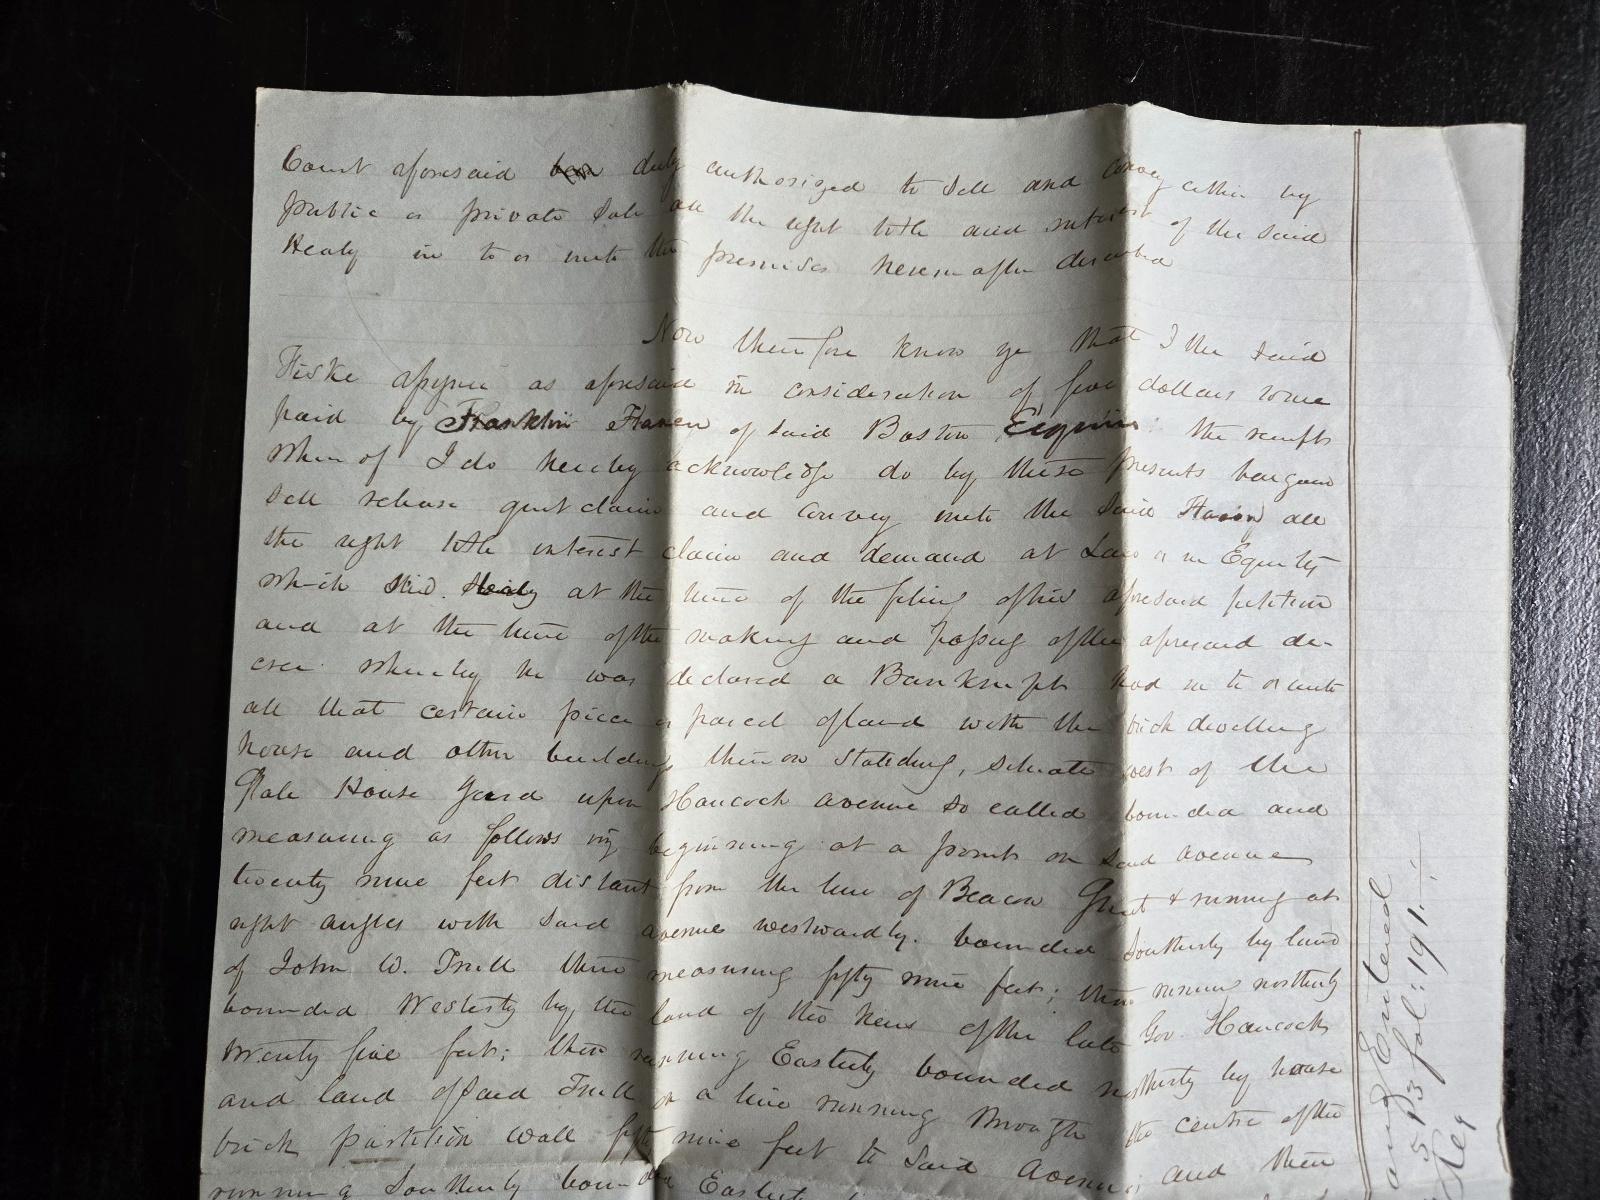 Court aforesaid duly authorized to Sell and convey either by
public or private Sale all the right title and interest of the Said
Healy in to or unto the premises hereinafter described
Now therefore know ye that I the Said
Fiske assignee as aforesaid in consideration of five dollars to me
paid by Franklin Haven of Said Boston Esquire the receipt
whereof I do hereby acknowledge do by these presents bargain
Sell release quitclaim and convey unto the Said Haven all
the right title interest claim and demand at Law or in Equity
which Said Healy at the time of the filing of his aforesaid petition
and at the time of the making and passing of the aforesaid de-
cree whereby he was declared a Bankrupt had in to or unto
all that certain piece or parcel of land with the brick dwelling
house and other buildings thereon Standing, situate west of the
State House Yard upon Hancock Avenue so called bounded and
measuring as follows viz beginning at a point on Said Avenue
twenty nine feet distant from the line of Beacon Street & running at
right angles with Said Avenue westwardly. bounded Southerly by land
of John W. Trull there measuring fifty nine feet; then running northerly
bounded Westerly by the land of the heirs of the late Gov. Hancock
twenty five feet; then running Easterly bounded northerly by house
and land of Said Trull on a line running through the centre of the
brick partition wall fifty nine feet to Said Avenue; and then
running Southerly bounded Easterly
and Entered
513 fol: 191.